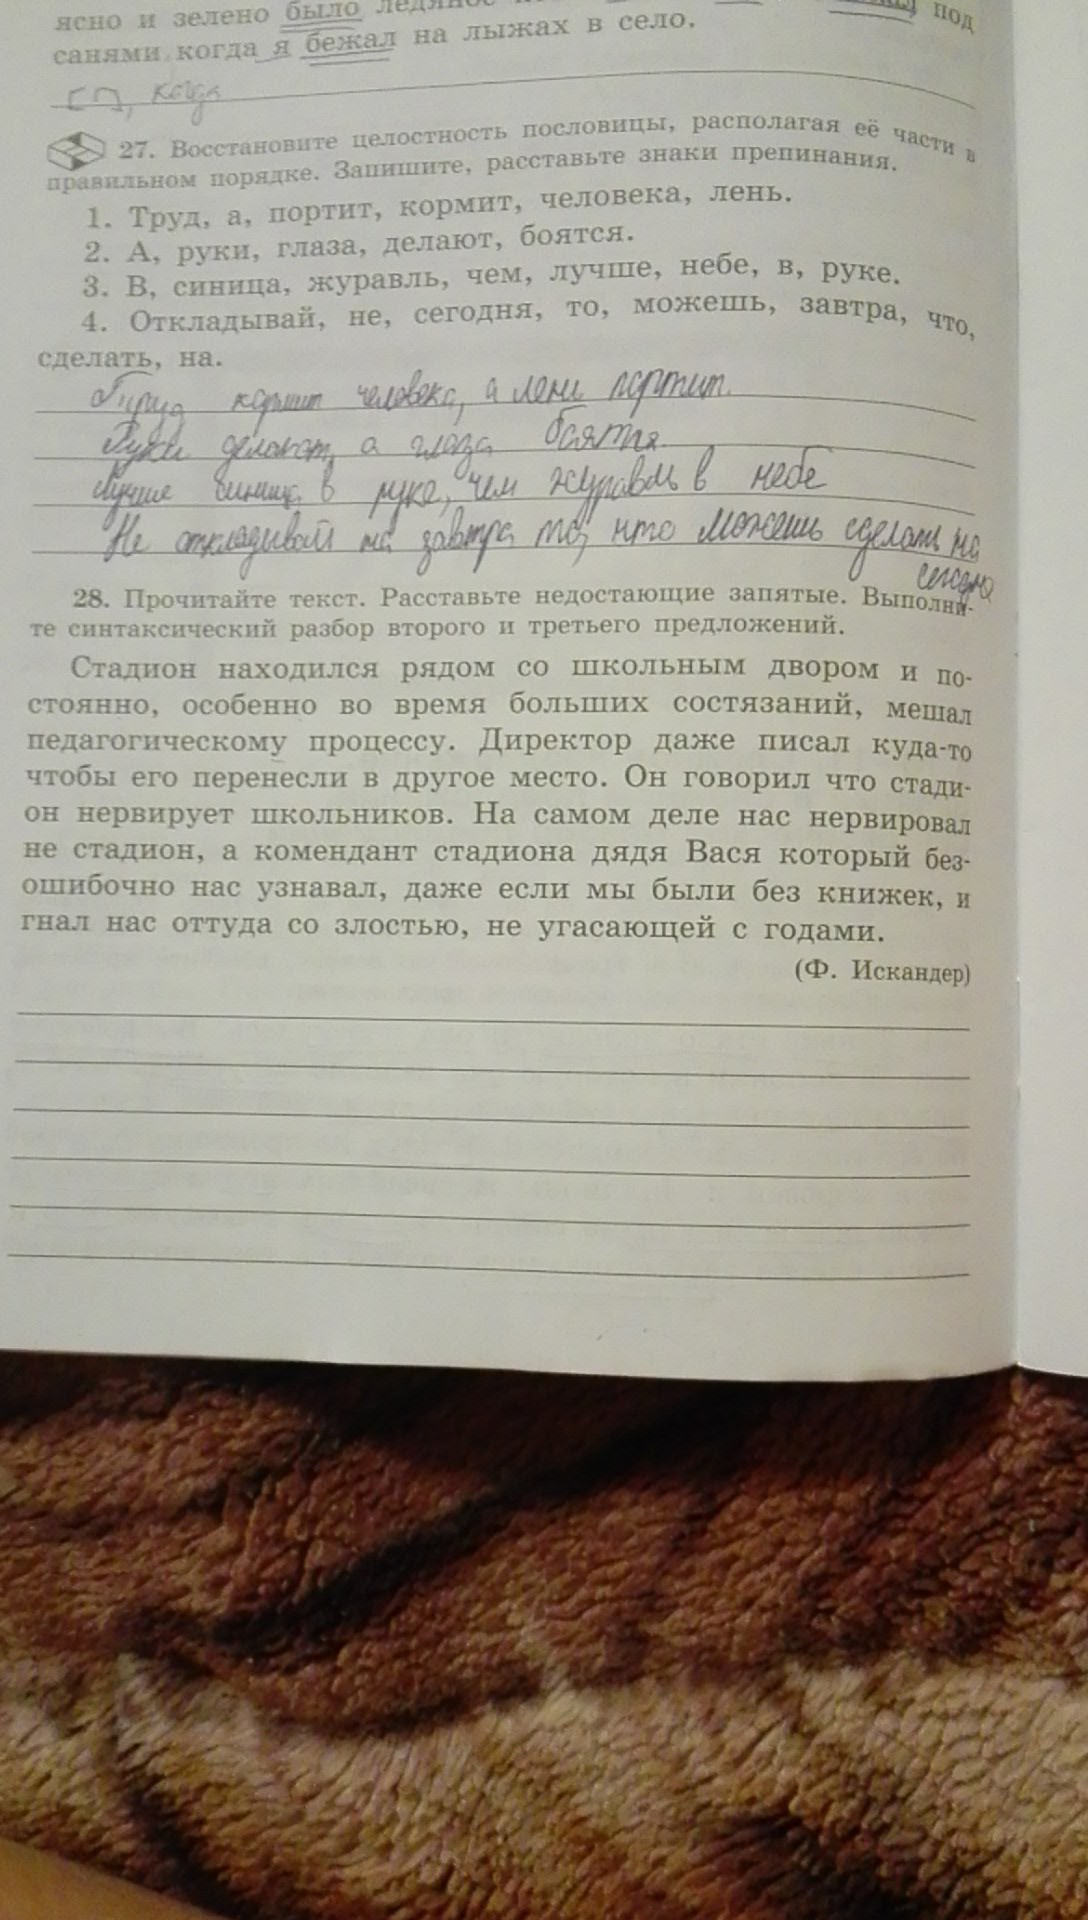 ясно и зелено было под
санями когда я бежал на лыжах в село.
[ ], когда
27. Восстановите целостность пословицы, располагая её части в
правильном порядке. Запишите, расставьте знаки препинания.
1. Труд, а, портит, кормит, человека, лень.
2. А, руки, глаза, делают, боятся.
3. В, синица, журавль, чем, лучше, небе, в, руке.
4. Откладывай, не, сегодня, то, можешь, завтра, что,
сделать, на.
Труд кормит человека, а лень портит.
Руки делают, а глаза боятся.
Лучше синица в руке, чем журавль в небе
Не откладывай на завтра то, что можешь сделать на
сегодня
28. Прочитайте текст. Расставьте недостающие запятые. Выполни-
те синтаксический разбор второго и третьего предложений.
Стадион находился рядом со школьным двором и по-
стоянно, особенно во время больших состязаний, мешал
педагогическому процессу. Директор даже писал куда-то
чтобы его перенесли в другое место. Он говорил что стади-
он нервирует школьников. На самом деле нас нервировал
не стадион, а комендант стадиона дядя Вася который без-
ошибочно нас узнавал, даже если мы были без книжек, и
гнал нас оттуда со злостью, не угасающей с годами.
(Ф. Искандер)